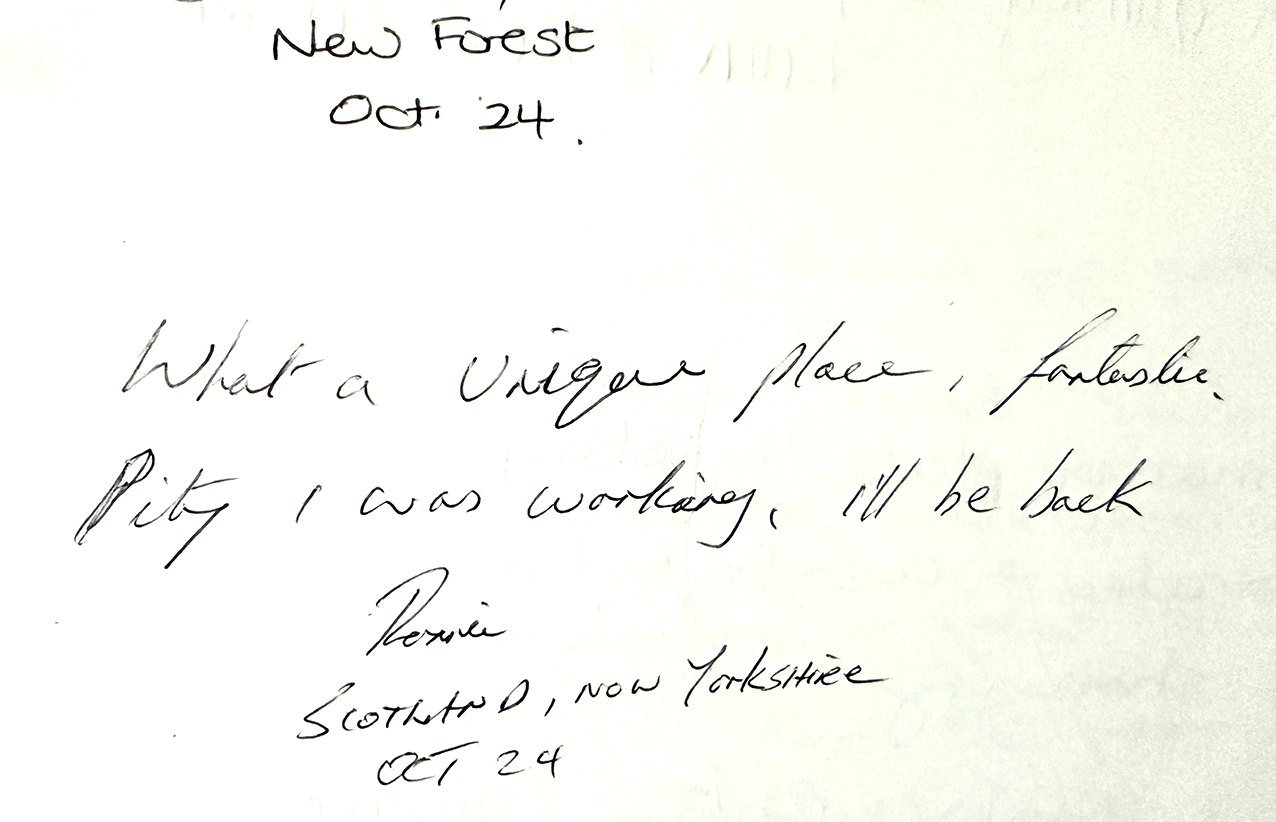 New Forest
Oct. 24.
What a unique place, fantastic.
Pity I was working, I'll be back
Ronnie
SCOTLAND, NOW YORKSHIRE
OCT 24